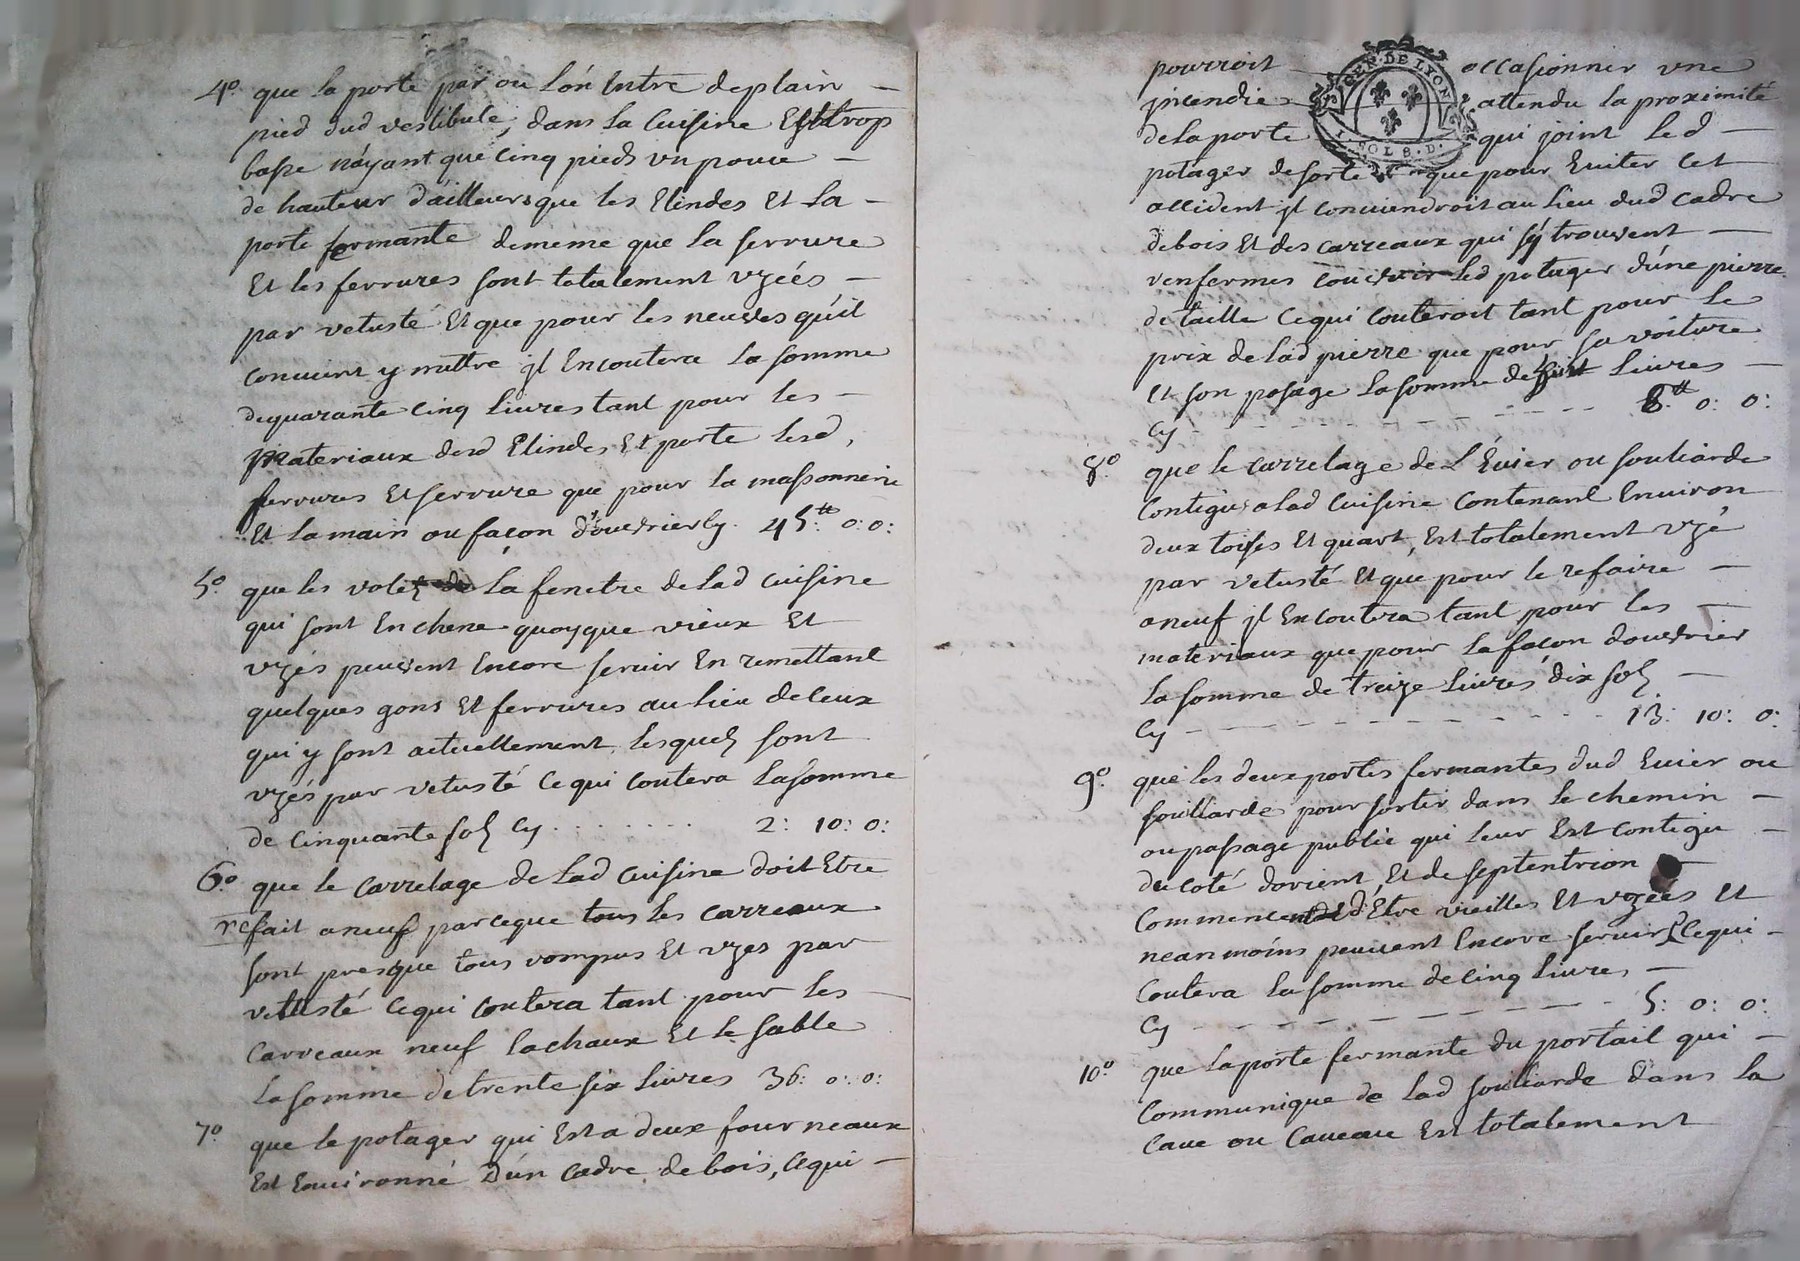 4º. que la porte par ou l'on Entre deplain —
pied dud vestibule, dans la Cuisine Est trop
basse n'ayant que Cinq pieds un pouce —
de hauteur d'ailleurs que les Elindes Et la —
porte fermante demême que la serrure
Et les ferrures sont totalement uzées —
par vetusté Et que pour les neuves qu'il
convient y mettre jl Encoutera la somme
dequarante Cinq livres tant pour les —
materiaux desd Elindes Et porte lesd,
ferrures Et serrure que pour la massonnerie
Et la main ou façon d'ouvrier Cy. 45.tt 0: 0:
5º. que les volets la fenetre de lad cuisine
qui sont En chene quoyque vieux Et
uzés peuvent Encore servir En remettant
quelques gons Et ferrures au lieu de Ceux
qui y sont actuellement, lesquels sont
uzés par vetusté Ce qui coutera la somme
de Cinquante sols Cy . . . . . . . 2: 10: 0:
6º. que le Carrelage de lad cuisine doit Etre
refait a neuf parceque tous les carreaux
sont presque tous rompus Et uzes par
vetusté Ce qui Coutera tant pour les —
Carreaux neuf la chaux Et le sable
la somme de trente six livres 36: 0: 0:
7º. que le potager qui Est a deux fourneaux
Est Environné d'un Cadre de bois, Ce qui —
pourroit occasionner une
jncendie attendu la proximité
de la porte qui joint led —
potager de sorte que pour Eviter Cet
accident jl conviendroit au lieu dud cadre
de bois Et des carreaux qui s'y trouvent —
renfermes led potager d'une pierre
de taille Ce qui Couteroit tant pour le
prix de lad pierre que pour sa voiture
Et son posage la somme de huit livres —
Cy - - - - - - - - - - - 8.tt 0: 0:
GEN. DE LYON
SOL 8. D.
8º. que le Carrelage de l'Evier ou souliarde
Contigu a lad Cuisine Contenant Environ
deux toises Et quart, Est totalement uzé
par vetusté Et que pour le refaire —
a neuf jl En coutera tant pour les —
materiaux que pour la façon d'ouvrier
la somme de treize livres dix sols —
Cy - - - - - - - - - - - 13: 10: 0:
9º. que les deux portes fermantes dud Evier ou
souliarde pour sortir dans le chemin —
ou passage public qui leur Est Contigu —
du coté d'orient, Et de septentrion
Commencent d'Etre vieilles Et uzées Et
neanmoins peuvent Encore servir Ce qui —
Coutera la somme de Cinq livres —
Cy - - - - - - - - - - - 5: 0: 0:
10º. que la porte fermante du portail qui —
Communique de lad souliarde dans la
Cave ou Caveau Est totalement